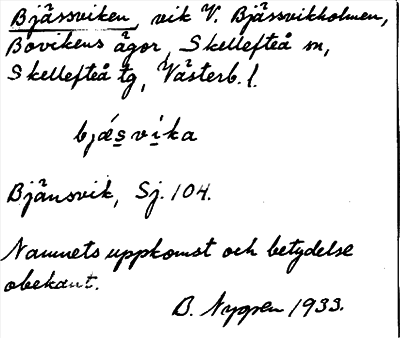 Bjässviken, vik V. Bjässvikholmen,
Bovikens ägor, Skellefteå sn,
Skellefteå tg, Västerb. l.
bjǽsvìka
Bjänsvik, Sj. 104.
Namnets uppkomst och betydelse
obekant.
B. Nygren 1933.